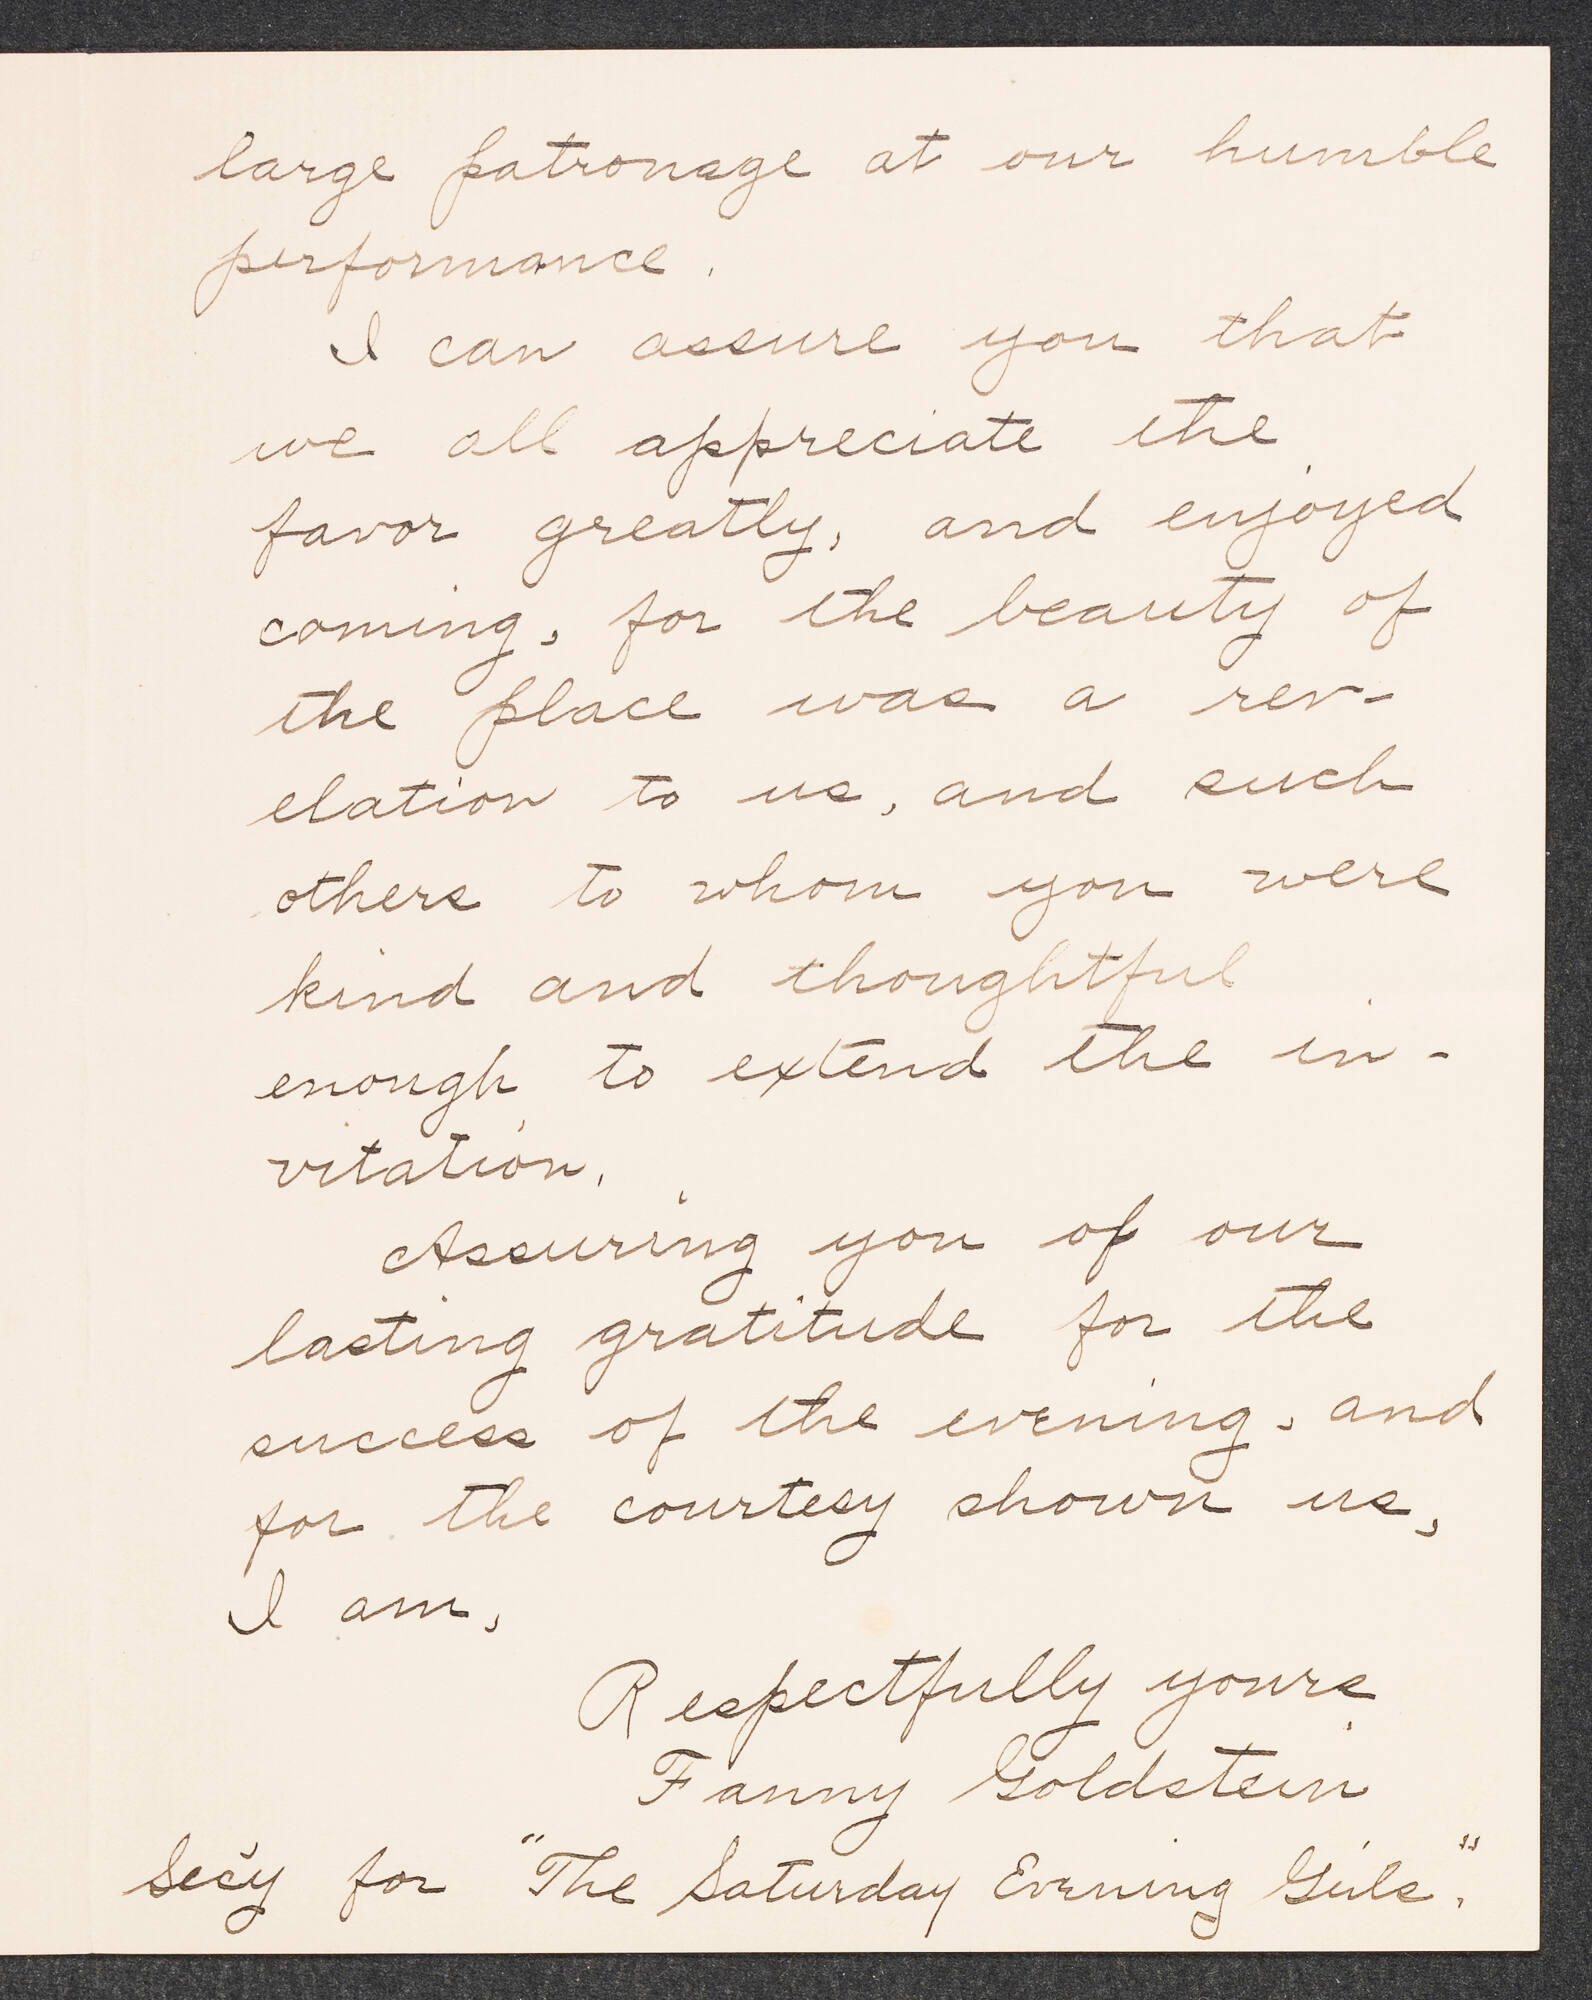 large patronage at our humble
performance.
I can assure you that
we all appreciate the
favor greatly, and enjoyed
coming, for the beauty of
the place was a rev-
elation to us, and such
others to whom you were
kind and thoughtful
enough to extend the in-
vitation.
Assuring you of our
lasting gratitude for the
success of the evening, and
for the courtesy shown us,
I am,
Respectfully yours,
Fanny Goldstein
Sec'y for "The Saturday Evening Girls".